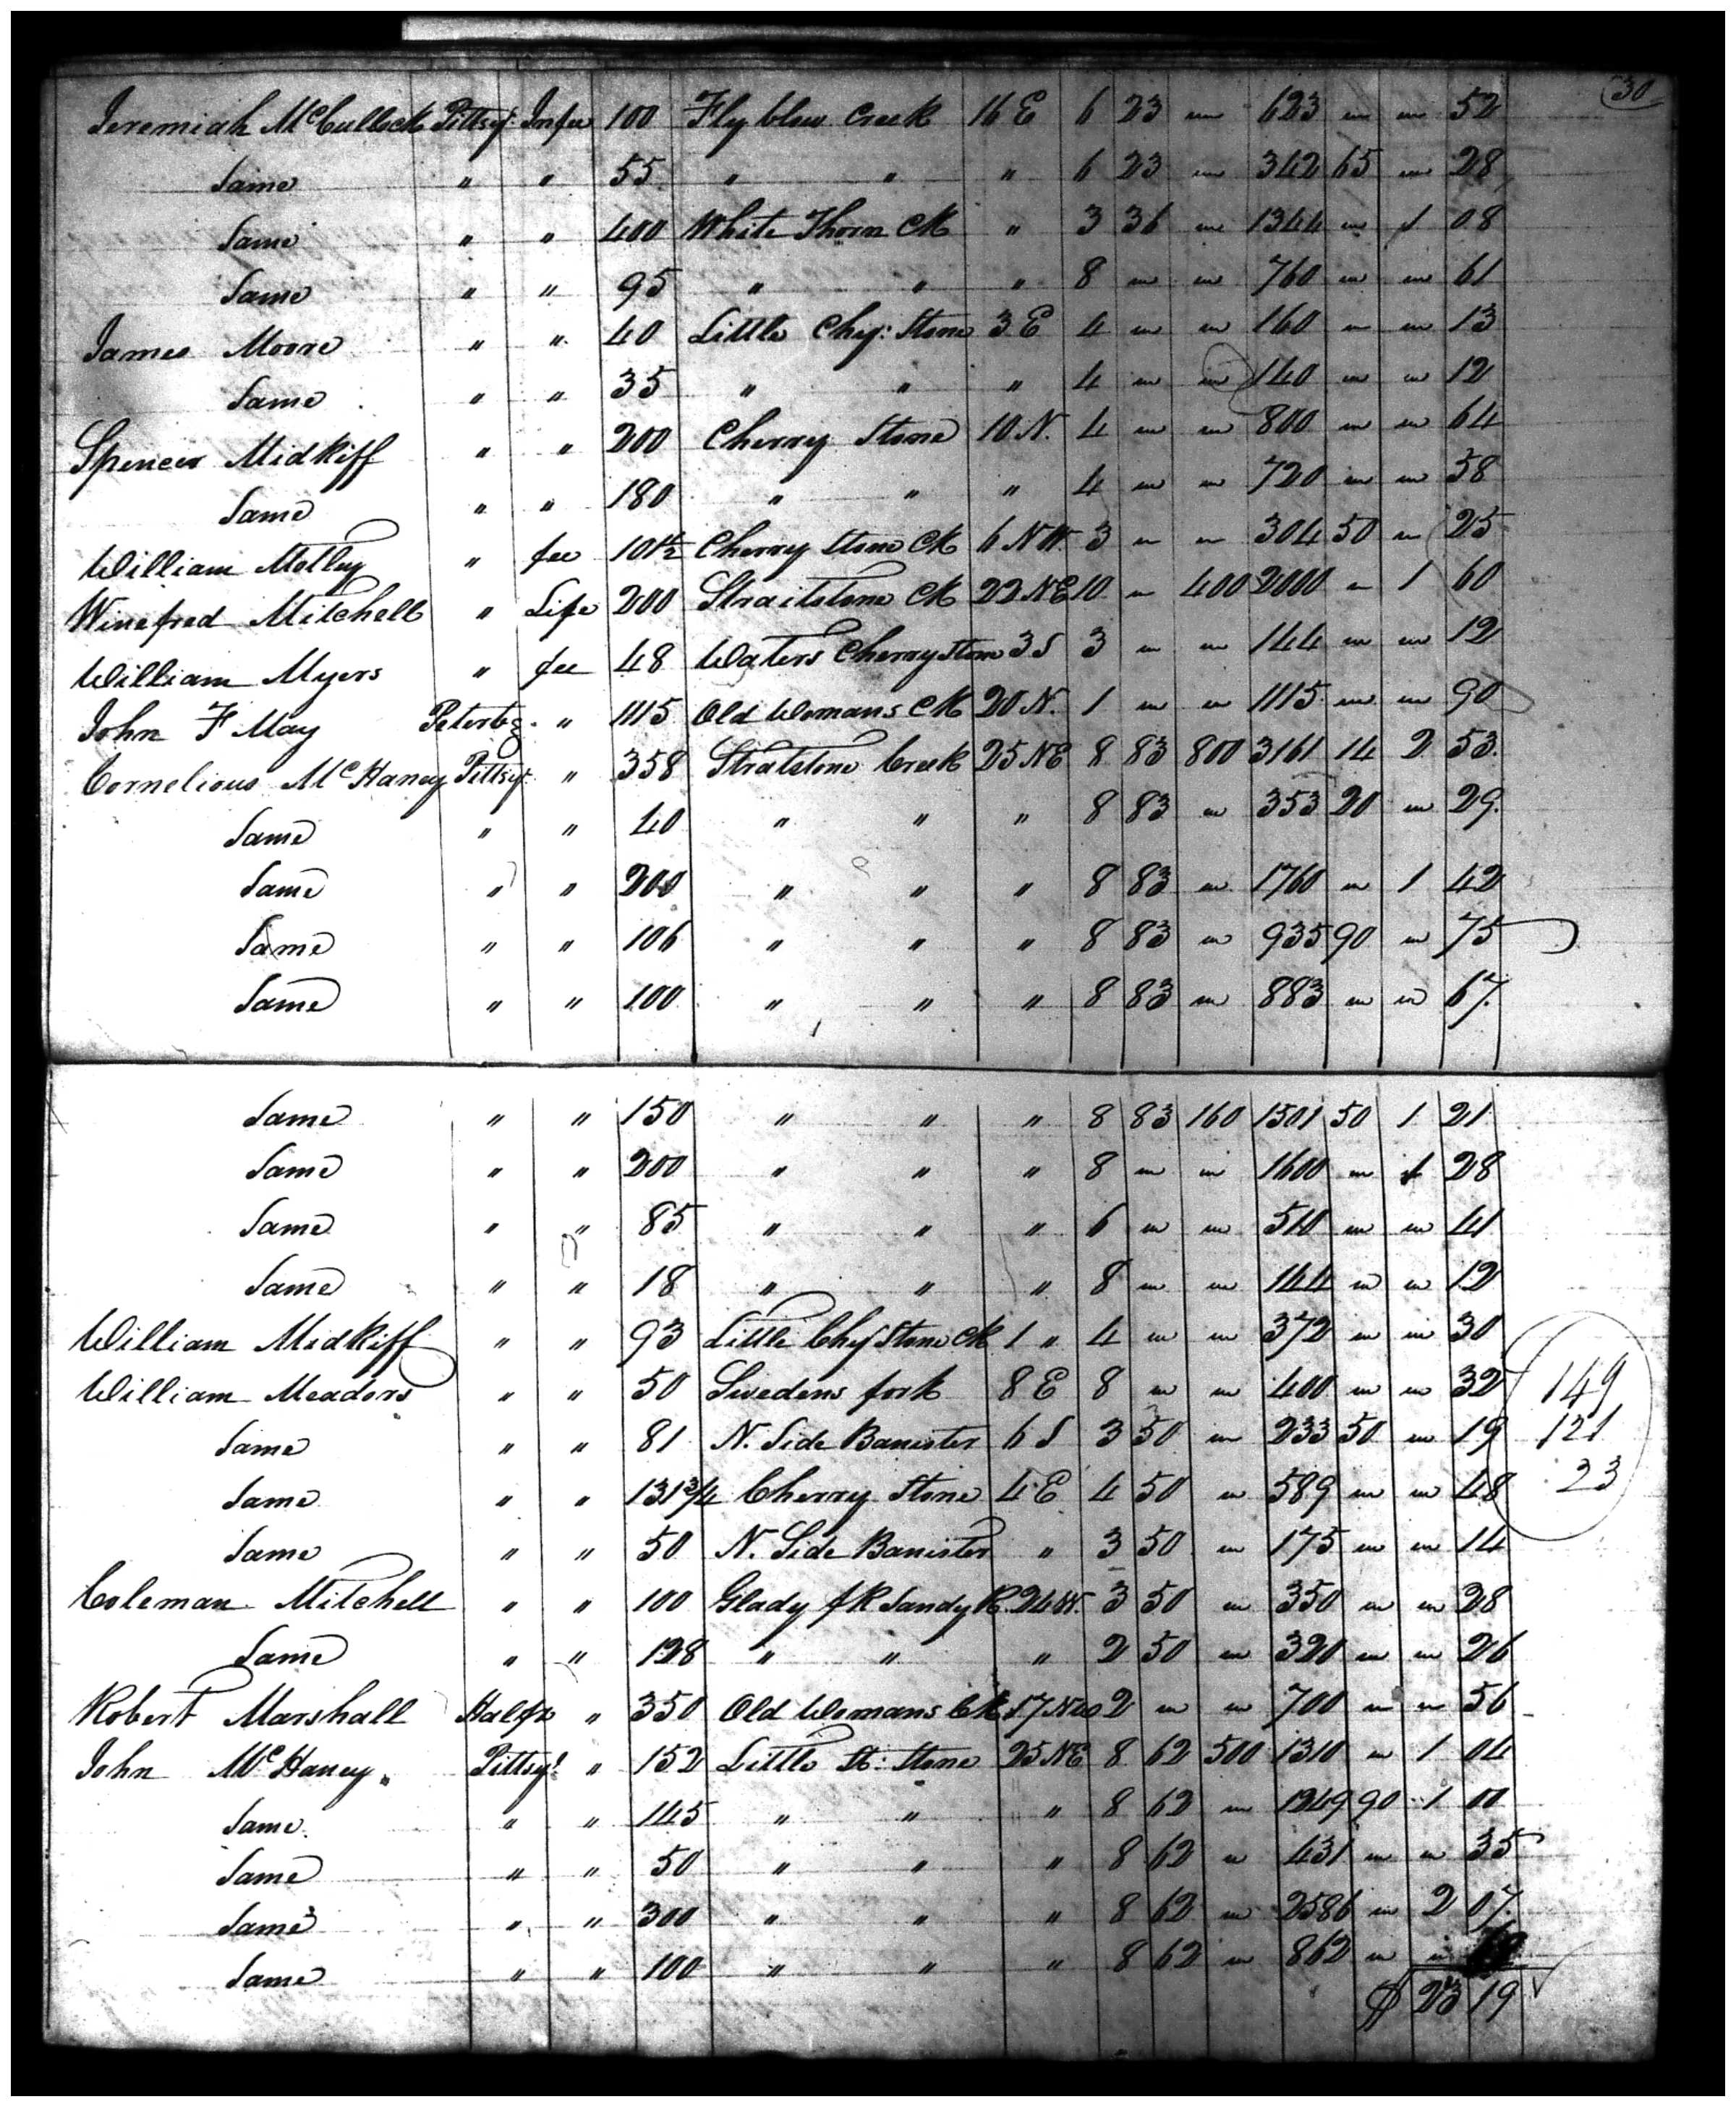 30
Jeremiah McCullock Pittsy: In fee 100 Fly blow Creek 16 E 6 23 " 623 " " 52
Same " " 55 " " " 6 23 " 342 65 " 28
Same " " 400 White Thorn CK " 3 36 " 1344 " 1 08
Same " " 95 " " " 8 " " 760 " " 61
James Moore " " 40 Little Chey: Stone 3 E 4 " " 160 " " 13
Same " " 35 " " " 4 " " 140 " " 12
Spencer Midkiff " " 200 Cherry Stone 10 N. 4 " " 800 " " 64
Same " " 180 " " " 4 " " 720 " " 58
William Motley " fee 101½ Cherry Stone CK 6 N W. 3 " " 304 50 " 25
Winefred Mitchell " Life 200 Straitstone CK 22 NE 10 " 400 2000 " 1 60
William Myers " fee 48 Waters Cherrystone 3 S 3 " " 144 " " 12
John F May Petersbg. " 1115 Old Womans CK 20 N. 1 " " 1115 " " 90
Cornelious McHaney Pittsy: " 358 Stratstone Creek 25 NE 8 83 800 3161 14 2 53.
Same " " 40 " " " 8 83 " 353 20 " 29.
Same " " 200 " " " 8 83 " 1760 " 1 42
Same " " 106 " " " 8 83 " 935 90 " 75
Same " " 100 " " " 8 83 " 883 " " 67.
Same " " 150 " " " 8 83 160 1501 50 1 21
Same " " 200 " " " 8 " " 1600 " 1 28
Same " " 85 " " " 6 " " 510 " " 41
Same " " 18 " " " 8 " " 144 " " 12
William Midkiff " " 93 Little Chy Stone CK 1 " 4 " " 372 " " 30
William Meadors " " 50 Swedens fork 8 E 8 " " 400 " " 32 149
Same " " 81 N. Side Banister 6 S 3 50 " 233 50 " 19 121
Same " " 131¾ Cherry Stone 4 E 4 50 " 589 " " 48 23
Same " " 50 N. Side Banister " 3 50 " 175 " " 14
Coleman Mitchell " " 100 Glady fk Sandy R. 24 W. 3 50 " 350 " " 28
Same " " 128 " " " 2 50 " 320 " " 26
Robert Marshall Halfx " 350 Old Womans CK 17 2 " " 700 " " 56
John McHaney Pittsy: " 152 Little St: Stone 25 NE 8 62 500 1310 " 1 04
Same " " 145 " " " 8 62 " 1249 90 1 00
Same " " 50 " " " 8 62 " 431 " " 35
Same " " 300 " " " 8 62 " 2586 " 2 07.
Same " " 100 " " " 8 62 " 862 " "
$ 23 19